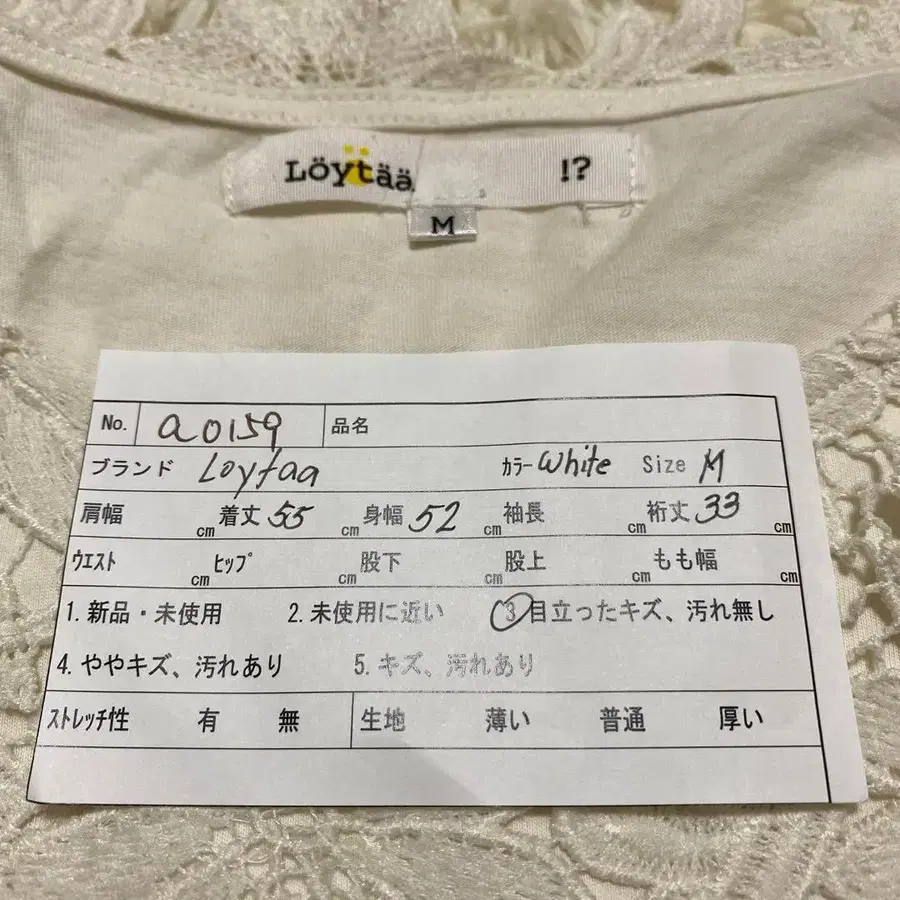 Löytää !?
M
No. a0159 品名
ブランド Loytaa カラー White Size M
肩幅 cm 着丈 55 cm 身幅 52 cm 袖長 cm 裄丈 33 cm
ウエスト cm ヒップ cm 股下 cm 股上 cm もも幅 cm
1.新品・未使用 2.未使用に近い 3目立ったキズ、汚れ無し
4.ややキズ、汚れあり 5.キズ、汚れあり
ストレッチ性 有 無 生地 薄い 普通 厚い